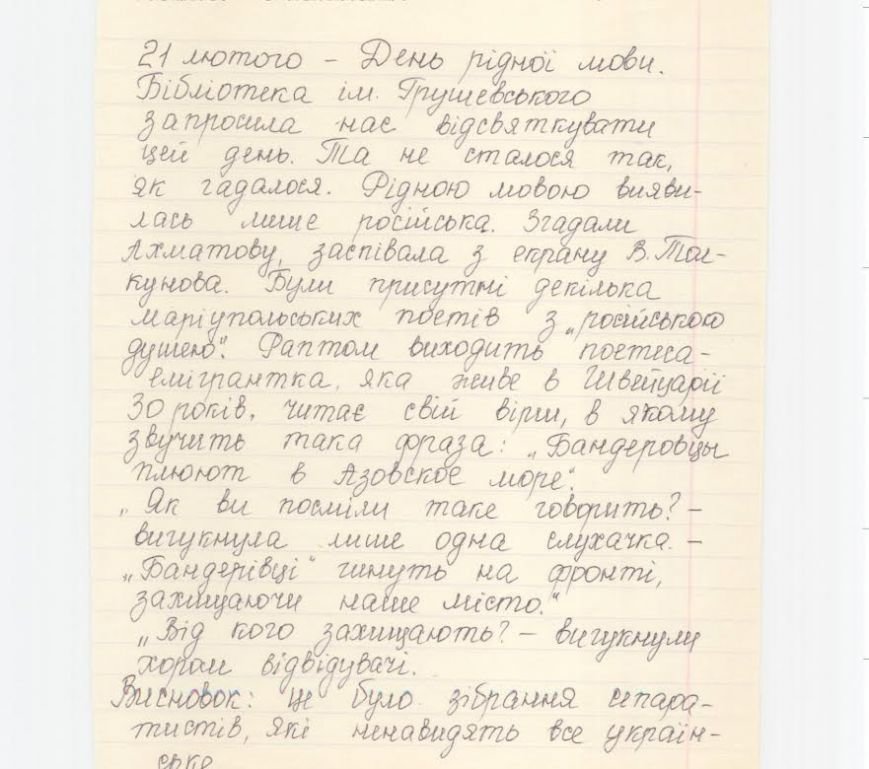 21 лютого – День рідної мови.
Бібліотека ім. Грушевського
запросила нас відсвяткувати
цей день. Та не сталося так,
як гадалося. Рідною мовою вияви-
лась лише російська. Згадали
Ахматову, заспівала з екрану В. Тол-
кунова. Були присутні декілька
маріупольських поетів з „російською
душею“. Раптом виходить поетеса-
емігрантка, яка живе в Швейцарії
30 років, читає свій вірш, в якому
звучить така фраза: „Бандеровцы
плюют в Азовское море“.
„Як ви посміли таке говорить? –
вигукнула лише одна слухачка. –
„Бандерівці“ гинуть на фронті,
захищаючи наше місто.“
„Від кого захищають? – вигукнули
хором відвідувачі.
Висновок: це було зібрання сепара-
тистів, які ненавидять все україн-
ське